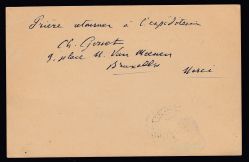 Prière retourner à l'expéditeur
Ch. Gosset
9, place M. Van Meenen
Bruxelles
Merci